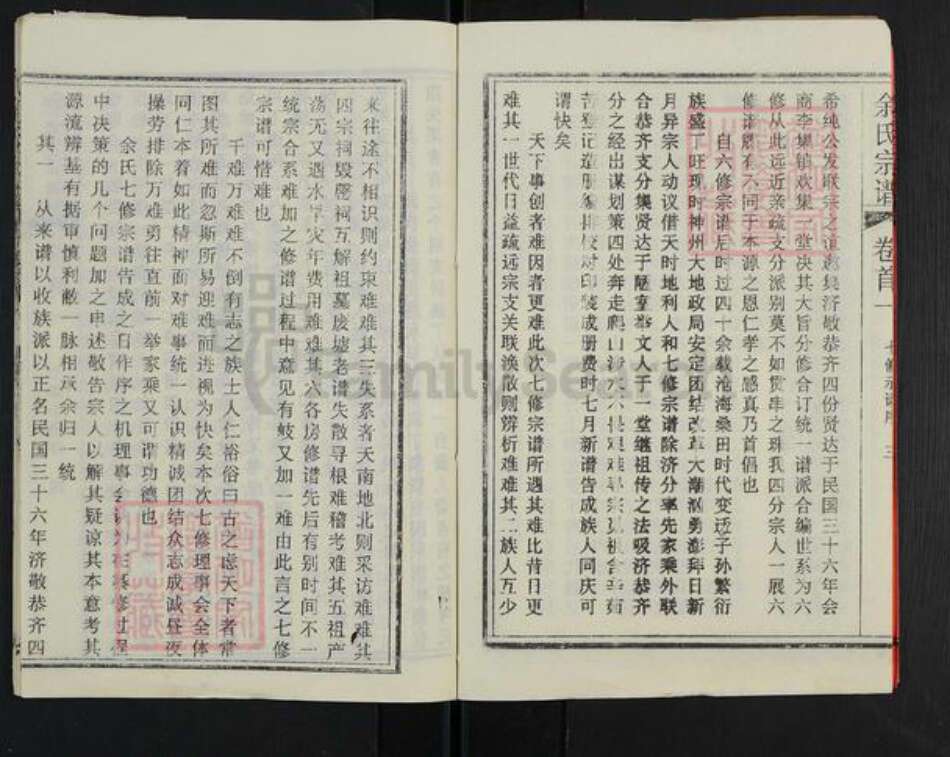 余氏宗谱 卷首一 七修宗谱序 三
希纯公发联宗之道邀集济敬恭齐四份贤达于民国三十六年会
商李集镇欢集一堂决其大旨分修合订统一谱派合编世系为六
修从此远近亲疏支分派别莫不如贯串之珠我四分宗人一展六
修谱牒有不同于本源之恩仁孝之感真乃首倡也
自六修宗谱后时过四十余载沧海桑田时代变迁子孙繁衍
族盛丁旺现时神州大地政局安定团结改革大潮汹勇澎拜日新
月异宗人动议借天时地利人和七修宗谱除济分率先家乘外联
合恭齐支分集贤达于陋室举文人于一堂继祖传之法吸济恭齐
分之经出谋划策四处奔走爬山涉水不畏艰难寻宗觅祖含辛茹
苦登记造册编排校对印装成册费时七月新谱告成族人同庆可
谓快矣
天下事创者难因者更难此次七修宗谱所遇其难比昔日更
难其一世代日益疏远宗支关联涣散则辨析难难其二族人互少
来往途不相识则约束难难其三失系者天南地北则采访难难其
四宗祠毁罄祠互解祖墓废墟老谱失散寻根难稽考难其五祖产
荡无又遇水旱灾年费用难难其六各房修谱先后有别时间不一
统宗合系难加之修谱过程中意见有歧又加一难由此言之七修
宗谱可惜难也
千难万难难不倒有志之族士人仁裕俗曰古之虑天下者常
图其所难而忽斯所易迎难而进视为快矣本次七修理事会全体
同仁本着如此精神面对难事统一认识精诚团结众志成诚昼夜
操劳排除万难勇往直前一举家乘又可谓功德也
余氏七修宗谱告成之日作序之机理事会 修过程
中决策的几个问题加之申述敬告宗人以解其疑谅其本意考其
源流辨基有据审慎利敝一脉相承余归一统
其一 从来谱以收族派以正名民国三十六年济敬恭齐四
FamilySearch